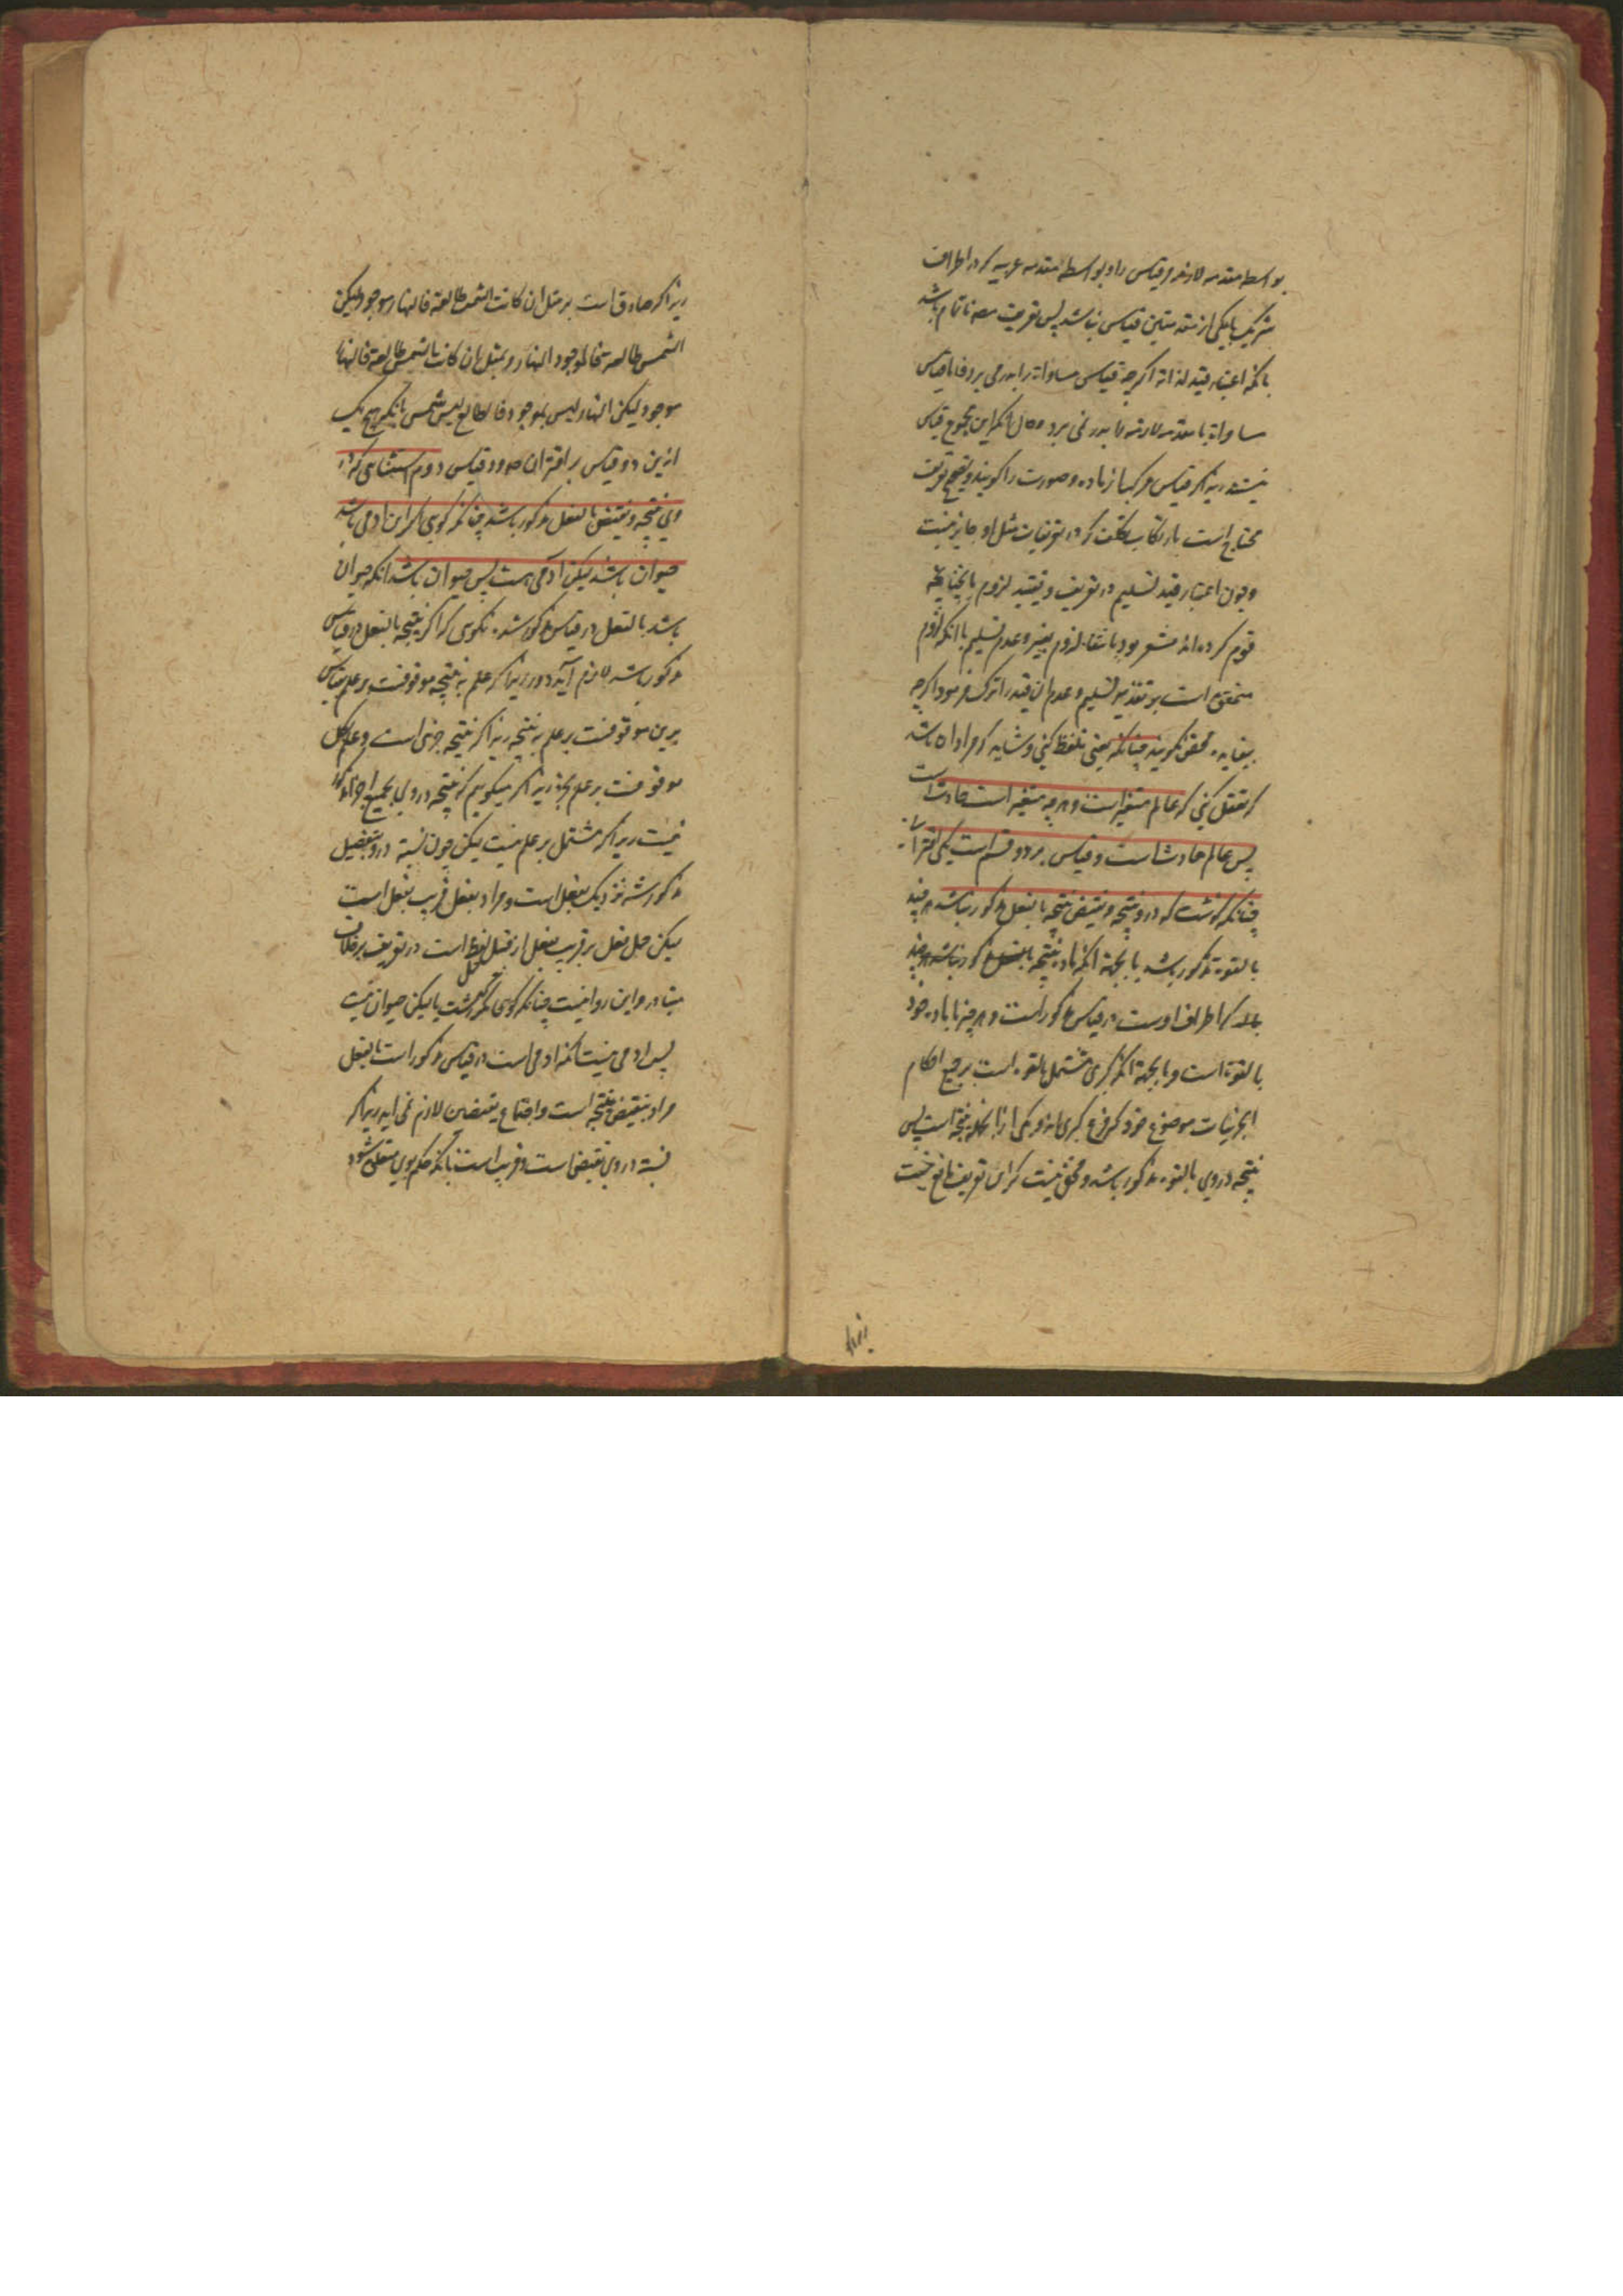 بواسطه مقدمه لازمه قیاس را و بواسطه مقدمه غریبه که در اطراف
شریک با یکی از مقدمتین قیاس نباشد پس تعریف نا تمام باشد
بآنکه اعتبار قید لذاته اگرچه قیاس مساواة را بدر می برد فاما قیاس
مساواة با مقدمه لازمه را بدر نمی برد آنکه این مجموع قیاس
نیست زیراکه قیاس مرکب از ماده و صورت را گویند و تصحیح تعریف
محتاج است بارتکاب تکلف که در تعریفات مثل او جایز نیست
و چون اعتبار قید تسلیم در تعریف و تقیید لزوم با چنانچه
قوم کرده اند مشعر بود بانتفاء لزوم بتقدیر عدم تسلیم با آنکه لزوم
متحقق است بر تقدیر تسلیم و عدم آن قید را ترک فرمود اگرچه
بیفایده محض نگویند چنانکه یعنی تلفظ کنی و شاید که مراد آن باشد
که تعقل کنی که عالم متغیر است و هر چه متغیر است حادث است
پس عالم حادث است و قیاس بر دو قسم است یکی اقترانی
چنانکه گذشت که درو نتیجه و نقیض نتیجه بالفعل مذکور نباشد هر چند
بالقوة مذکور باشد یا بجهة آنکه ماده نتیجه بالفعل مذکور نباشد هر چند
که اطراف اوست در قیاس مذکور است و هر چیز با ماده خود
بالقوة است و یا بجهة آنکه کبری مشتمل بالقوه است بر جمیع احکام
جزئیات موضوع خود که فروع کبری اند و یکی از آنجمله نتیجه است پس
نتیجه در وی بالقوه مذکور باشد و مخفی نیست که این تعریف مانع نیست
زیرا
زیراکه صادق است بر مثل ان کانت الشمس طالعة فالنهار موجود لیکن
الشمس طالعه فالموجود النهار و بمثل ان کانت الشمس طالعة فالنهار
موجود لیکن النهار لیس بموجود فالطالع لیس شمس بآنکه هیچ یک
ازین دو قیاس بر اقتران و قیاس دوم استثنائی که در
وی نتیجه و نقیض بالفعل مذکور باشد چنانکه گوئی اگر این آدمی باشد
حیوان باشد لیکن آدمی هست پس حیوان باشد آنکه حیوان
باشد بالفعل در قیاس مذکور شد نگوئی که اگر نتیجه بالفعل در قیاس
مذکور باشد لازم آید دور زیراکه علم به نتیجه موقوفست بر علم بقیاس
برین موقوفست بر علم به نتیجه زیراکه نتیجه جزئی است و علم کل
موقوفست بر علم بجز زیراکه میگویم که نتیجه در وی بجمیع اجزا مذکور
نیست زیراکه مشتمل بر علم نیست لیکن چون نسبة درو بتفصیل
مذکور شد نزدیک بفعل است و مراد بفعل قریب بفعل است
لیکن حمل فعل بر قریب بفعل از قبیل لفظ است در تعریف بر خلاف
متبادر و این روا نیست چنانکه گوئی مگر گذشت یا لیکن حیوان نیست
پس آدمی نیست آنکه آدمی است در قیاس مذکور است بالفعل
مراد بنقیض نتیجه است و اجتماع نقیضین لازم نمی آید زیراکه
نسبة در وی نقیض است و قریب است بآنکه حکم بوی متعلق شود